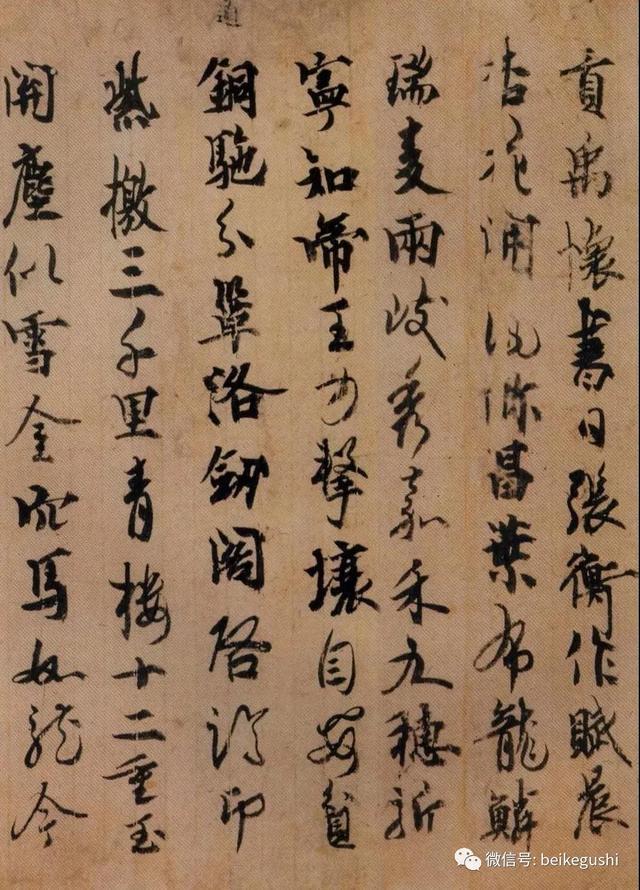 貢禹懷書日張衡作賦晨
杏花昌葉布龍鱗
瑞麥兩岐秀嘉禾九穗新
寧知帝王力擊壤自安貧
銅駞分鞏洛劒閣啓臨卭
紫徼三千里青樓十二重玉
關塵似雪金穴馬如龍今
微信号: beikegushi